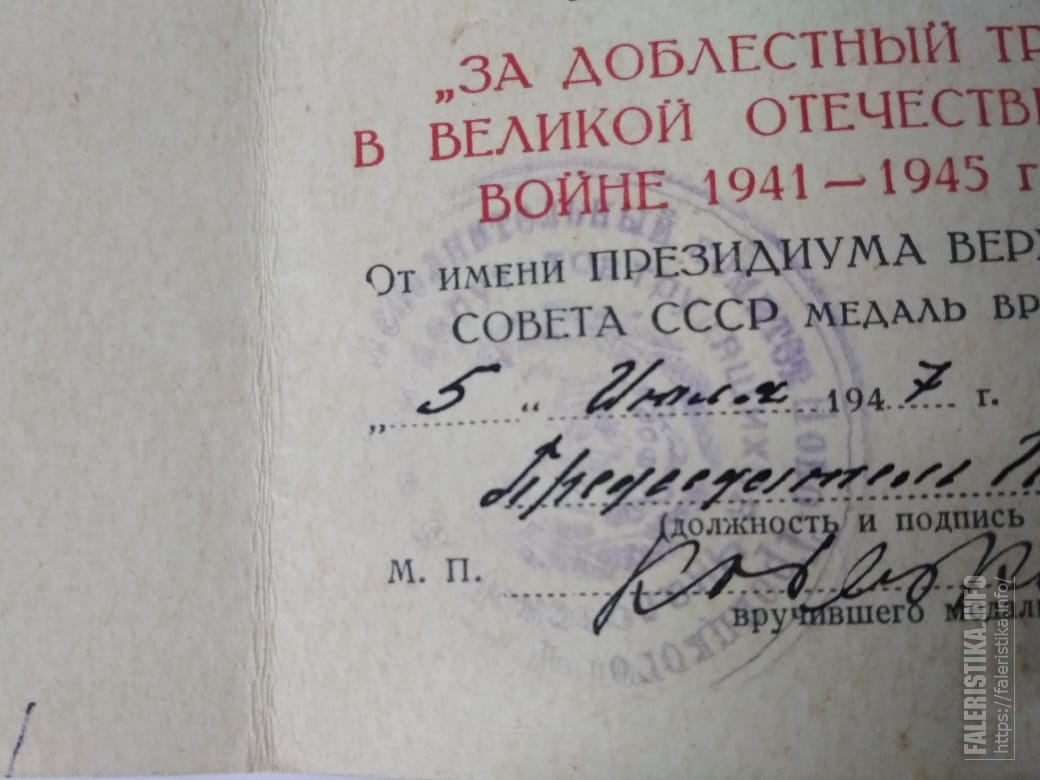 „ЗА ДОБЛЕСТНЫЙ ТР
В ВЕЛИКОЙ ОТЕЧЕСТВЕ
ВОЙНЕ 1941—1945 г
От имени ПРЕЗИДИУМА ВЕР
СОВЕТА СССР МЕДАЛЬ ВР
„5“ Июля 1947 г.
Председатель
(должность и подпись
М. П.
вручившего медаль
FALERISTIKA.INFO
https://faleristika.info/